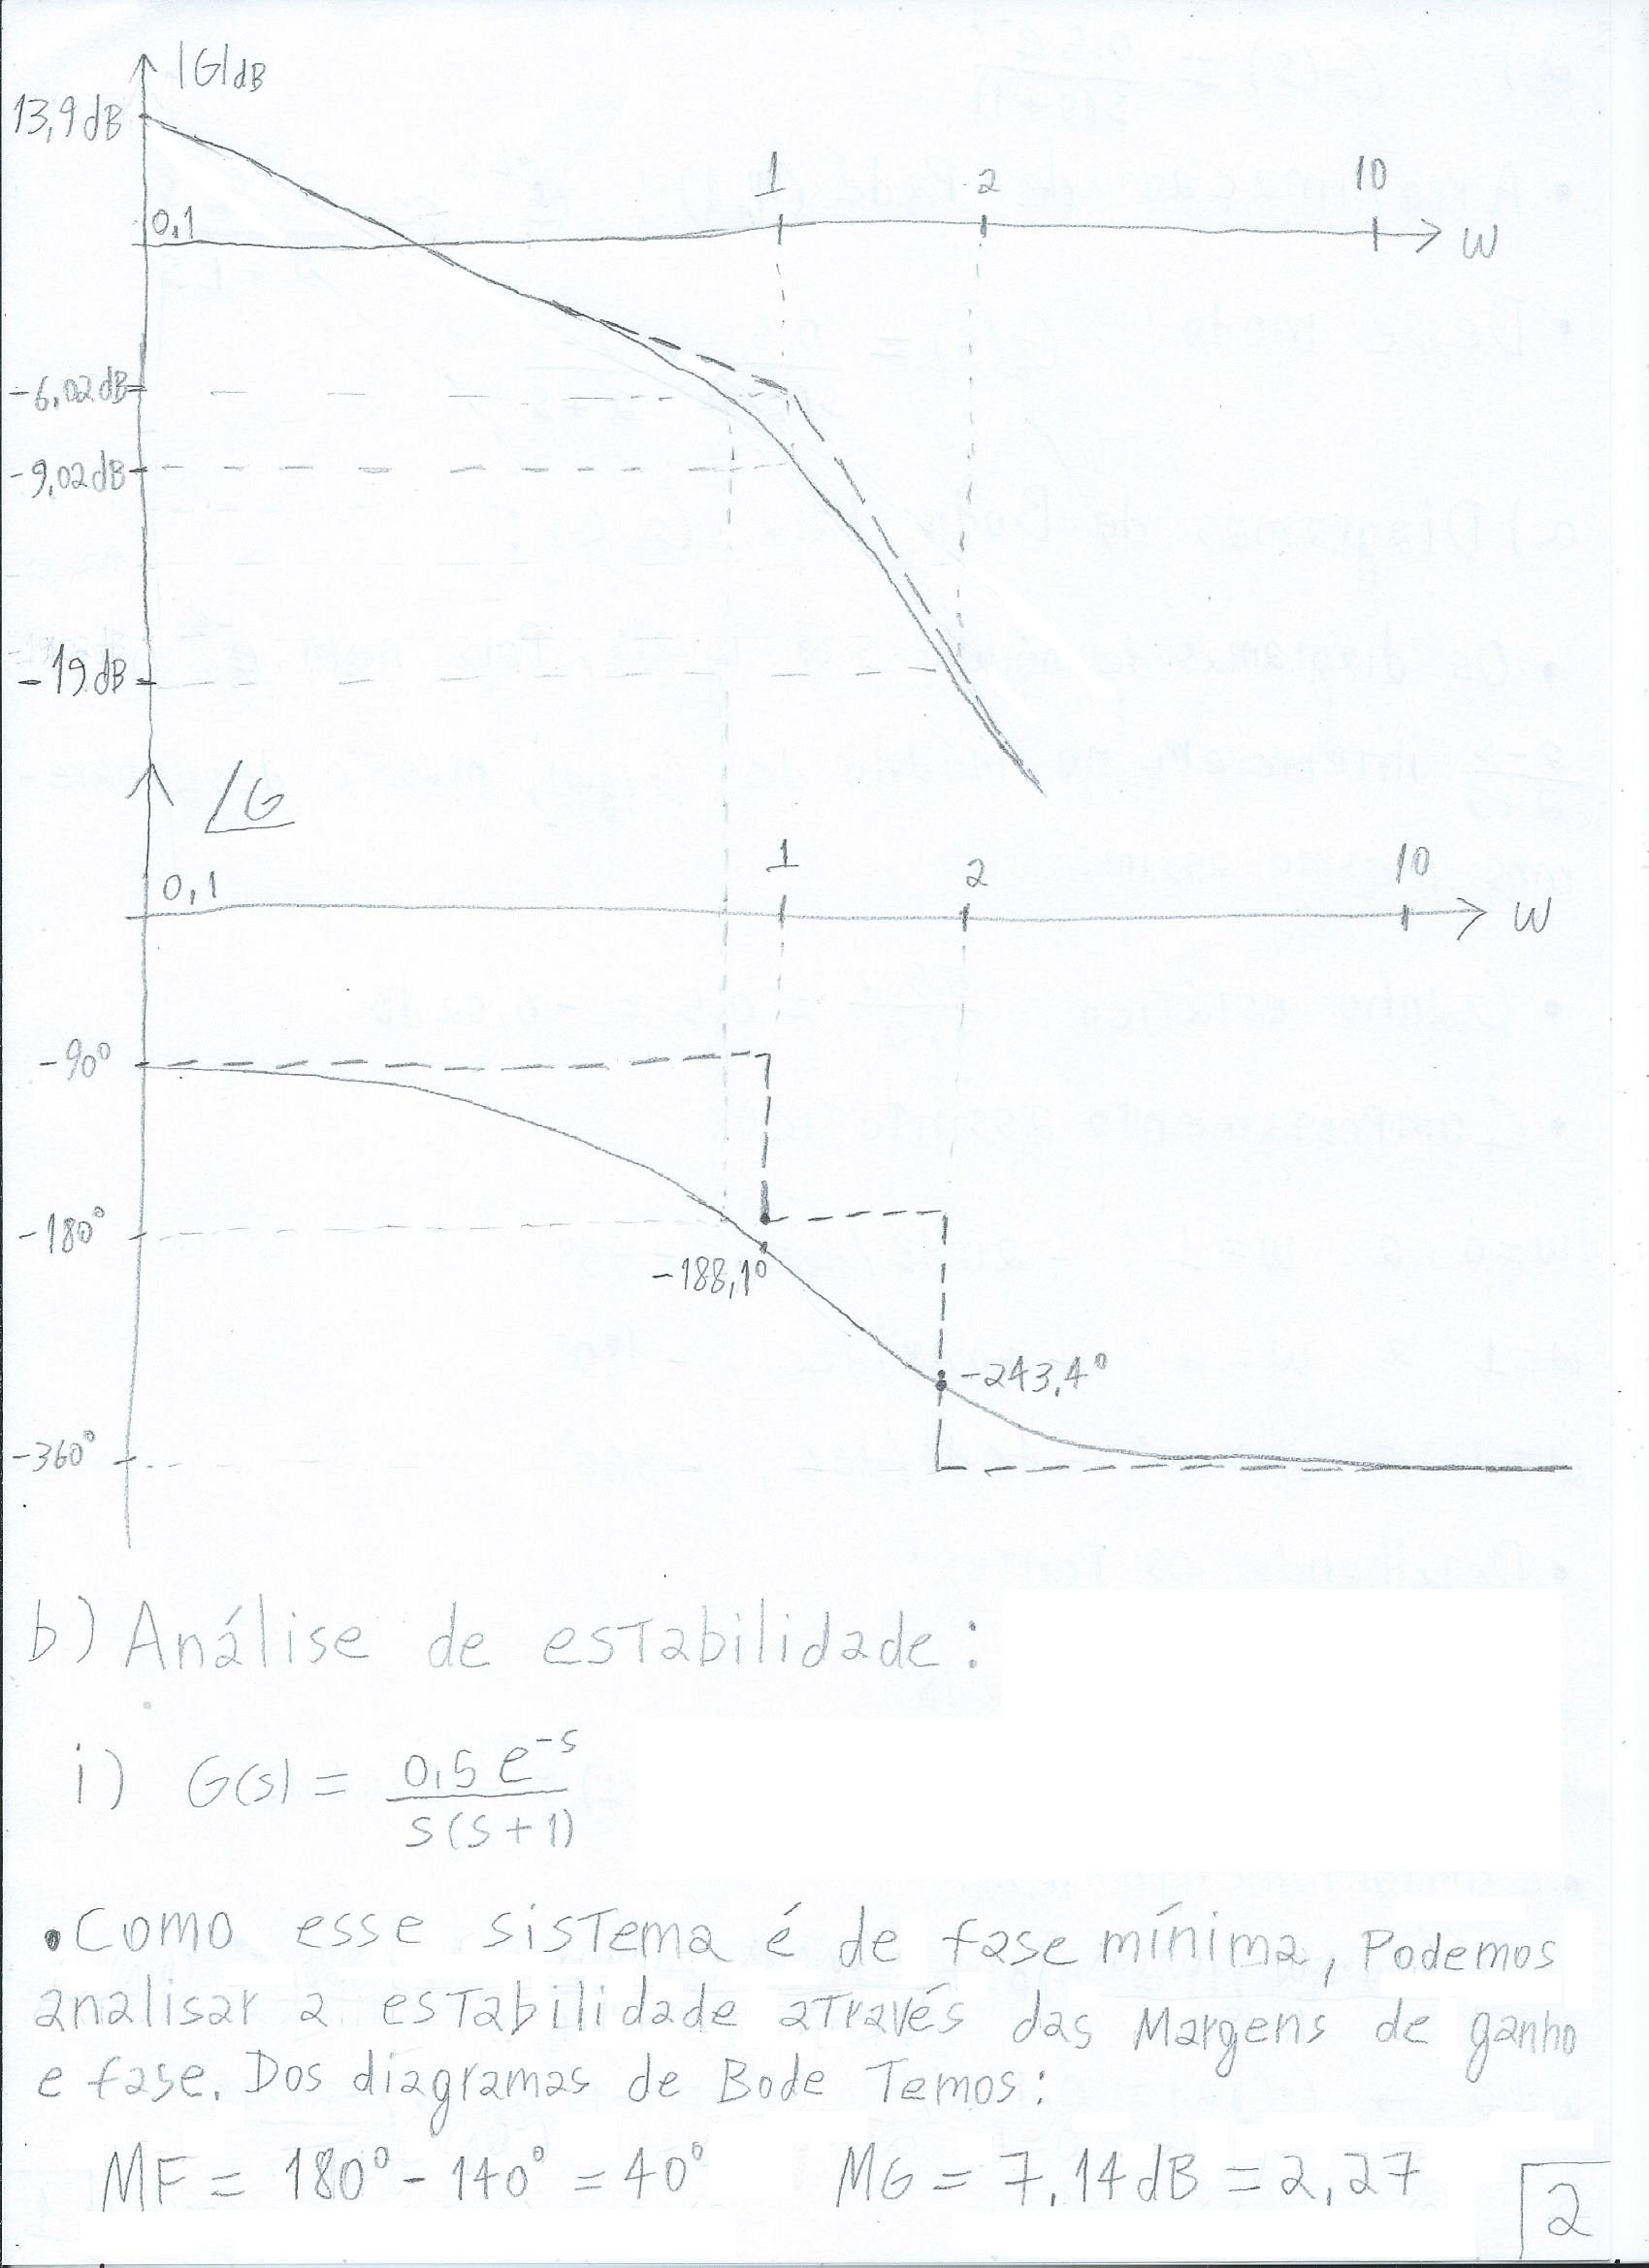 |G|dB
13,9dB
0,1
1
2
10
W
-6,02dB
-9,02dB
-19dB
∠G
0,1
1
2
10
W
-90°
-180°
-188,1°
-243,4°
-360°
b) Análise de estabilidade:
i) G(s) = 0,5 e^-s / s(s+1)
• Como esse sistema é de fase mínima, Podemos
analisar a estabilidade através das Margens de ganho
e fase. Dos diagramas de Bode Temos:
MF = 180° - 140° = 40° MG = 7,14dB = 2,27
2